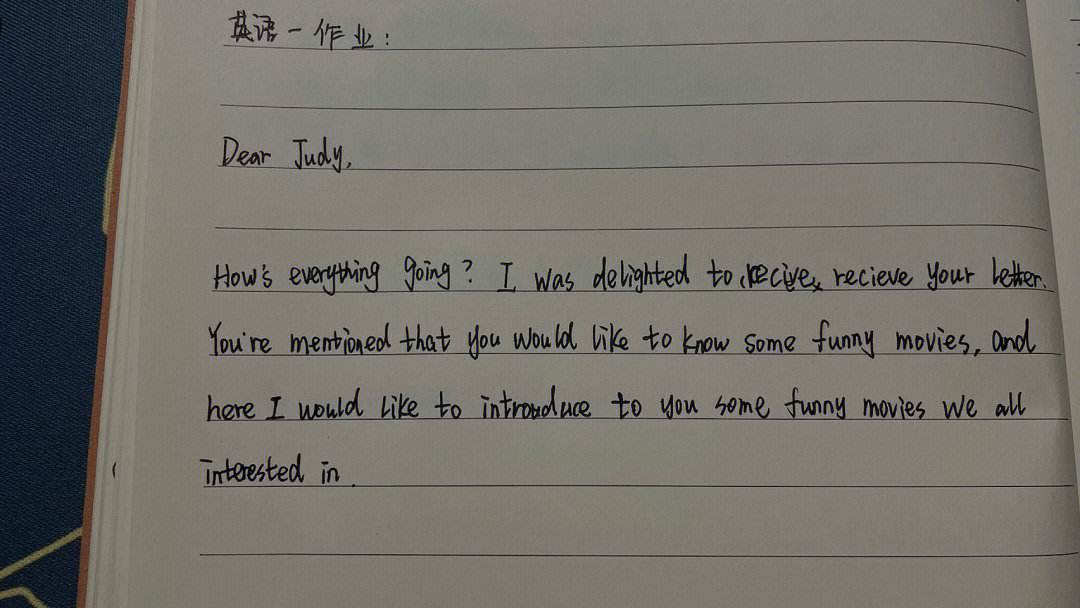 英语一作业:
Dear Judy,
How's everything going? I was delighted to recive recieve your letter.
You're mentioned that you would like to know some funny movies, and
here I would like to introduce to you some funny movies we all
interested in.